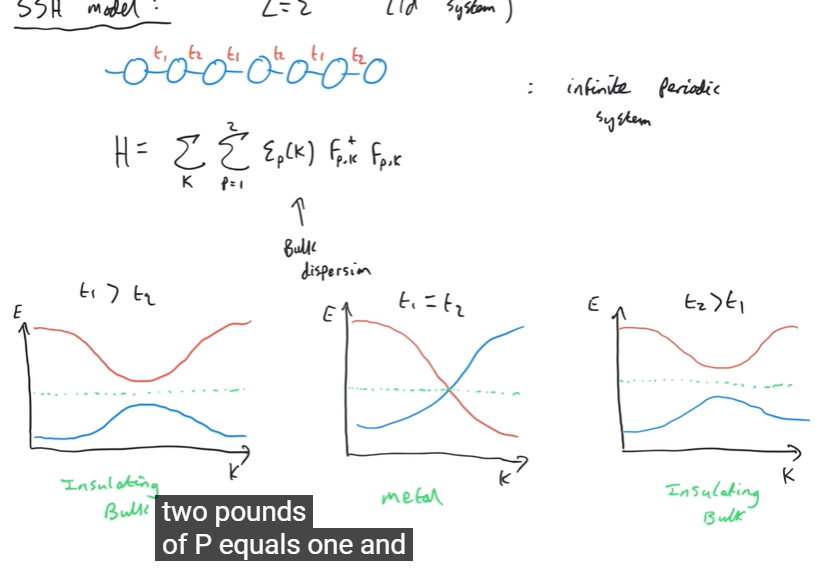 SSH model: L=2 (1d system)
t₁ t₂ t₁ t₂ t₁ t₂
: infinite periodic
system
H = Σ_K Σ_{p=1}^{2} ε_p(K) F†_{p,K} F_{p,K}
Bulk
dispersion
t₁ > t₂
t₁ = t₂
t₂ > t₁
E
E
E
K
K
K
Insulating
Bulk
metal
Insulating
Bulk
two pounds
of P equals one and